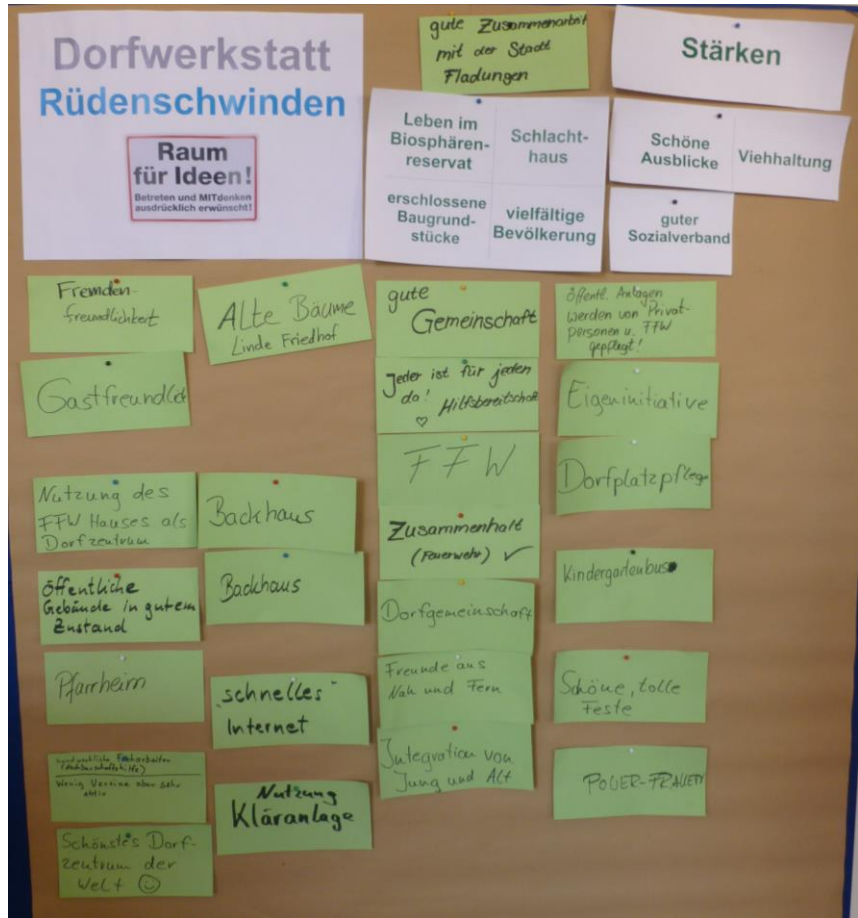 Dorfwerkstatt
Rüdenschwinden
Raum
für Ideen!
Betreten und MITdenken
ausdrücklich erwünscht!
gute Zusammenarbeit
mit der Stadt
Fladungen
Stärken
Leben im
Biosphären-
reservat
Schlacht-
haus
erschlossene
Baugrund-
stücke
vielfältige
Bevölkerung
Schöne
Ausblicke
Viehhaltung
guter
Sozialverband
Fremden-
freundlichkeit
Gastfreundlich
Nutzung des
FFW Hauses als
Dorfzentrum
öffentliche
Gebäude in gutem
Zustand
Pfarrheim
(Nachbarschaftshilfe)
Wenig Vereine aber sehr
aktiv
Schönstes Dorf-
zentrum der
Welt
Alte Bäume
Linde Friedhof
Backhaus
Backhaus
"schnelles"
Internet
Nutzung
Kläranlage
gute
Gemeinschaft
Jeder ist für jeden
da!
♡ Hilfsbereitschaft
FFW
Zusammenhalt
(Feuerwehr) ✓
Dorfgemeinschaft
Freunde aus
Nah und Fern
Integration von
Jung und Alt
öffentl. Anlagen
werden von Privat-
personen u. FFW
gepflegt!
Eigeninitiative
Dorfplatzpflege
Kindergartenbus
Schöne, tolle
Feste
POWER-FRAUEN